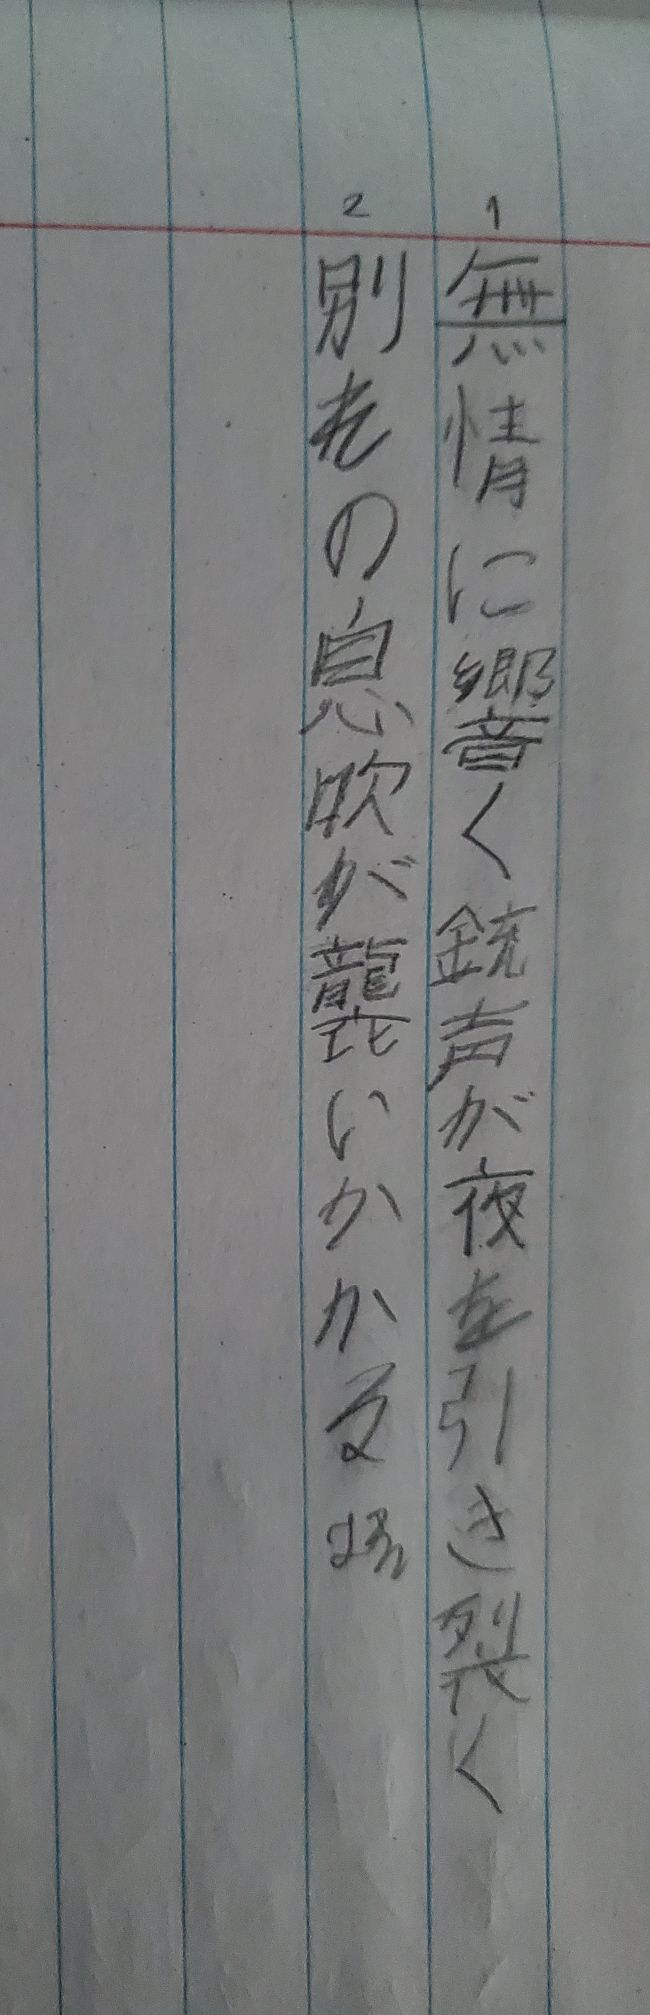 1
無情に響く銃声が夜を引き裂く
2
別れの息吹が襲いかかる